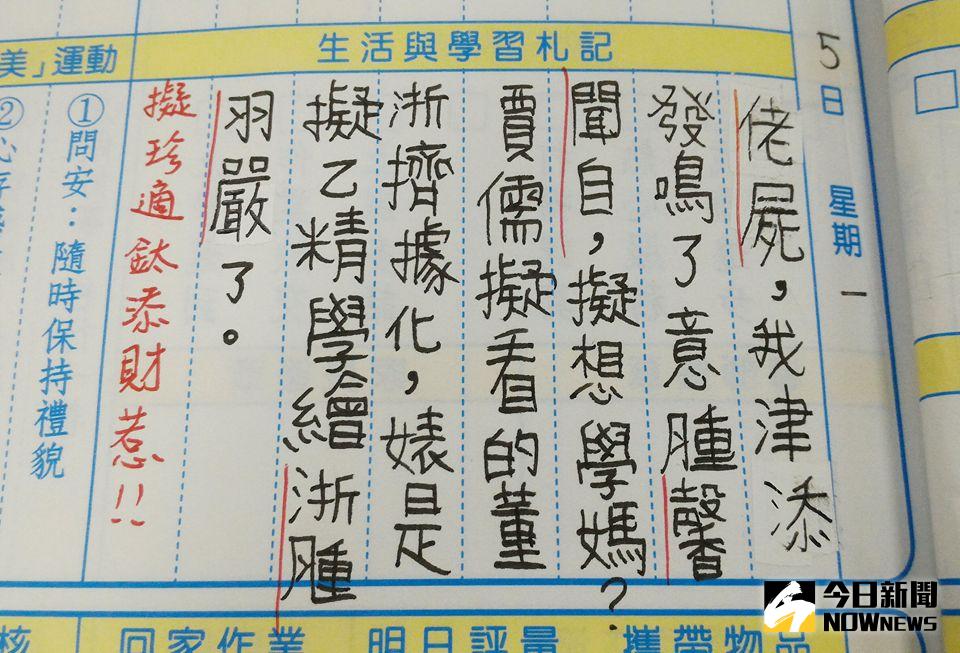 美」運動
生活與學習札記
5日 星期一
佬屍，我津添
發鳴了意腫馨
聞自，擬想學媽？
賈儒擬看的董
浙擠據化，婊是
擬乙精學繪浙腫
羽嚴了。
擬珍適鈦添財惹!!
①問安：隨時保持禮貌
②心存
核
回家作業
明日評量
攜帶物品
今日新聞
NOWNEWS